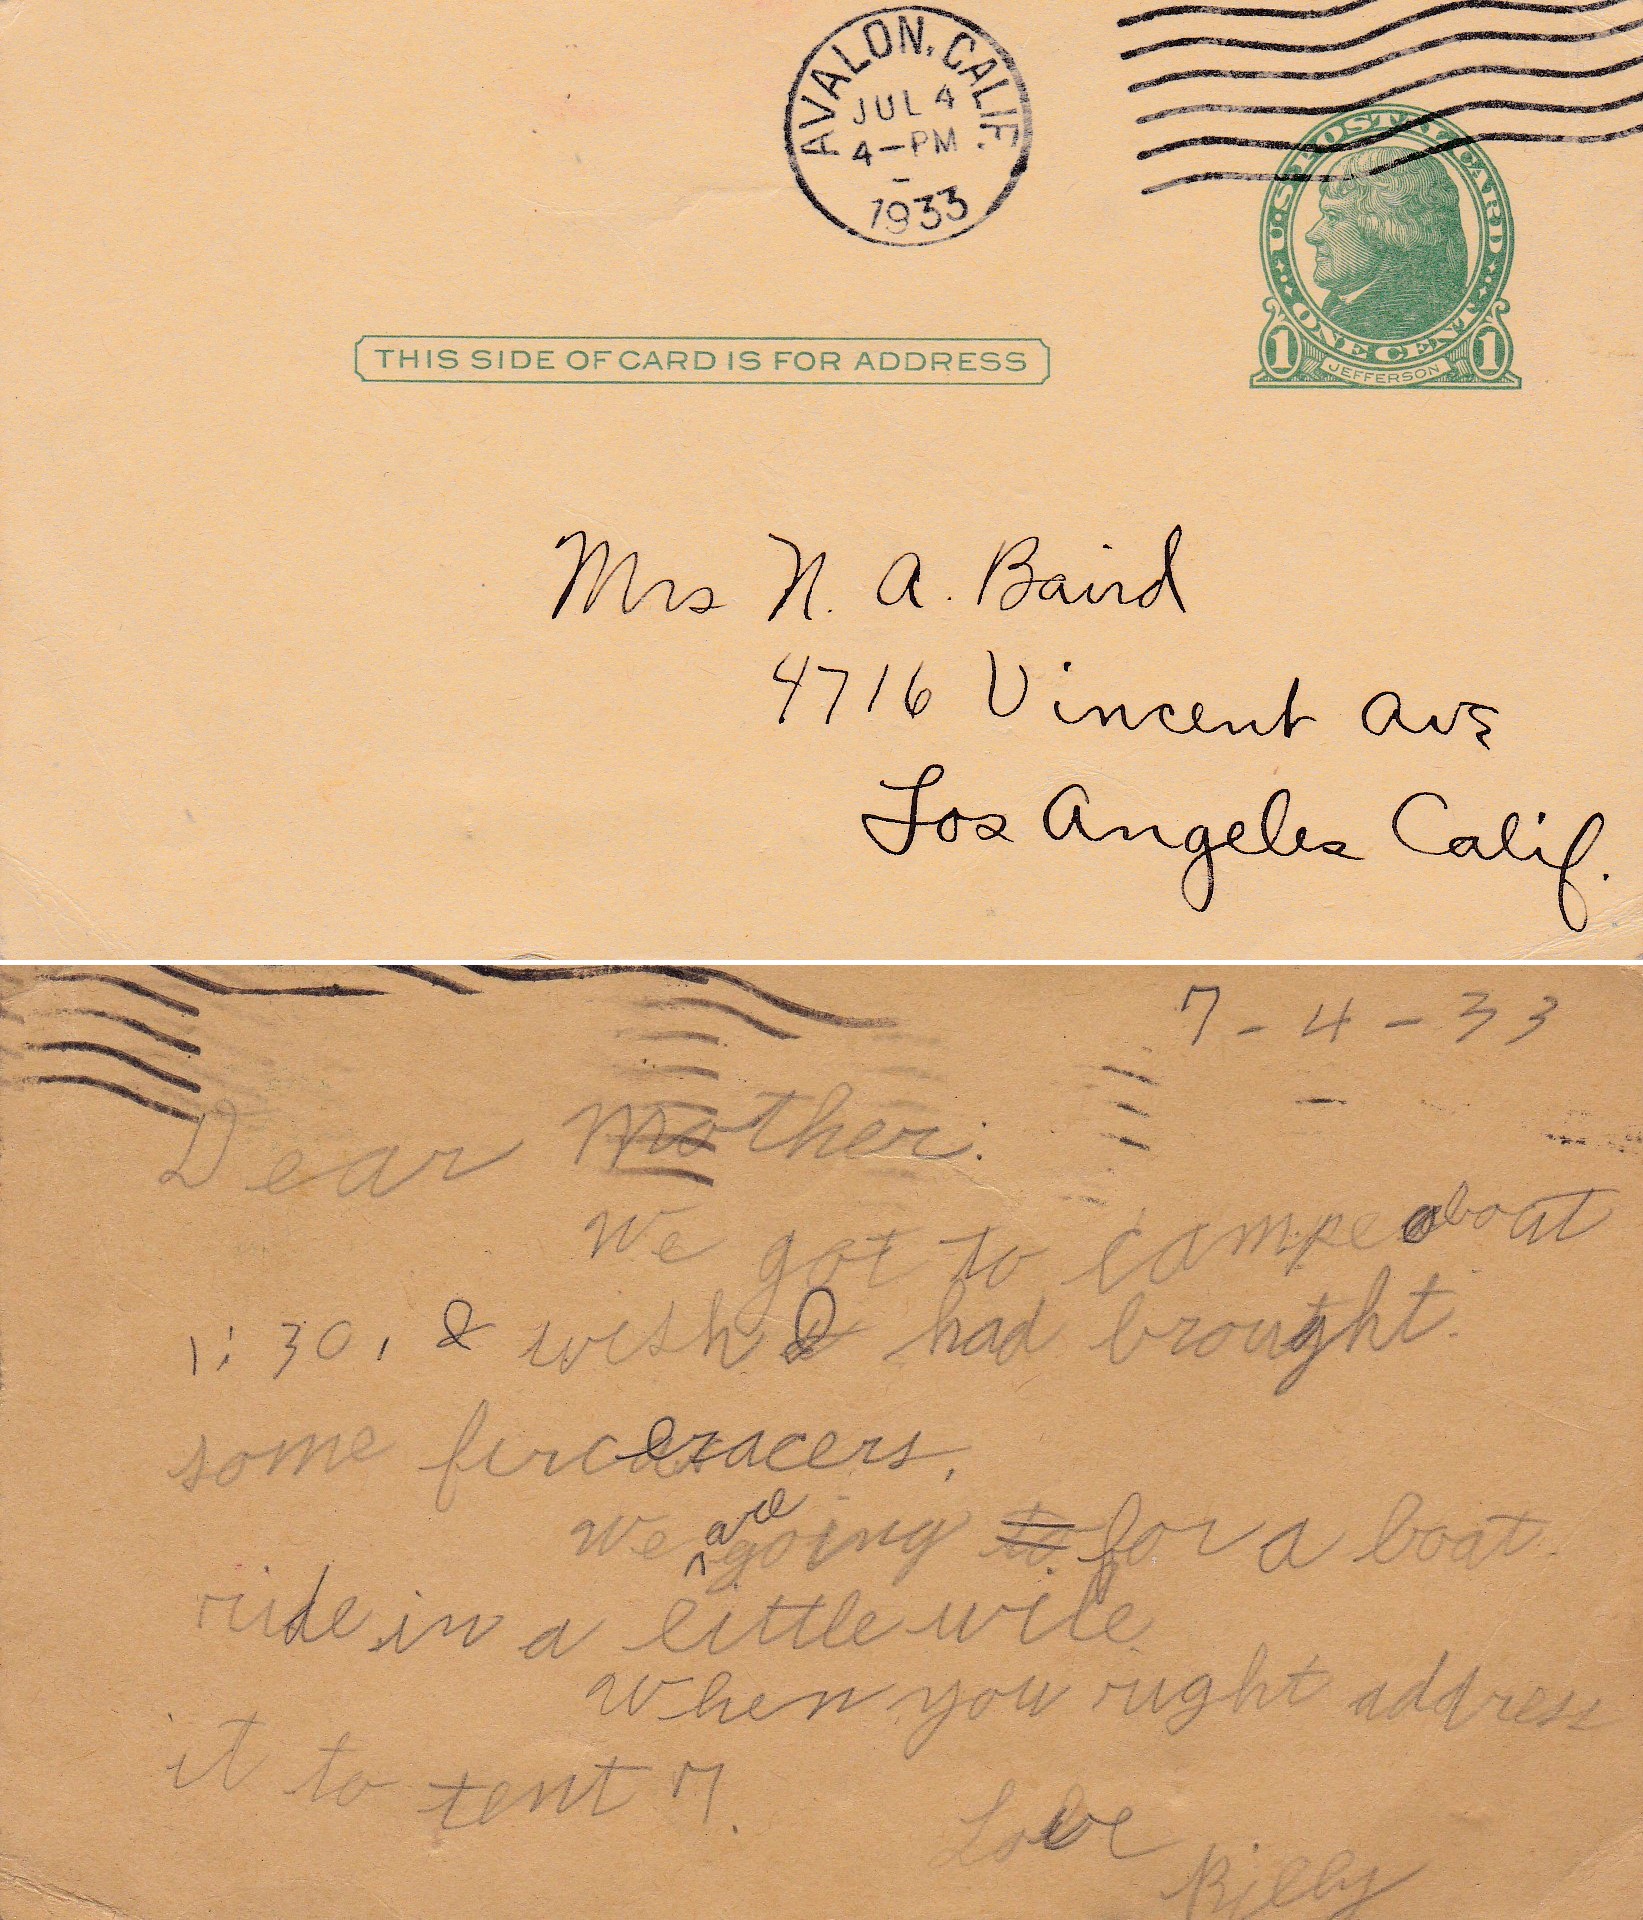 AVALON, CALIF.
JUL 4
4-PM
1933
U.S. POSTAL CARD
ONE CENT
1 JEFFERSON 1
THIS SIDE OF CARD IS FOR ADDRESS
Mrs N. A. Baird
4716 Vincent Ave
Los Angeles Calif.
7-4-33
Dear Mother:
We got to campe about
1:30, & wish I had brought
some fircracers.
We are going to for a boat
ride in a little wile
When you right address
it to tent 7.
Love
Billy